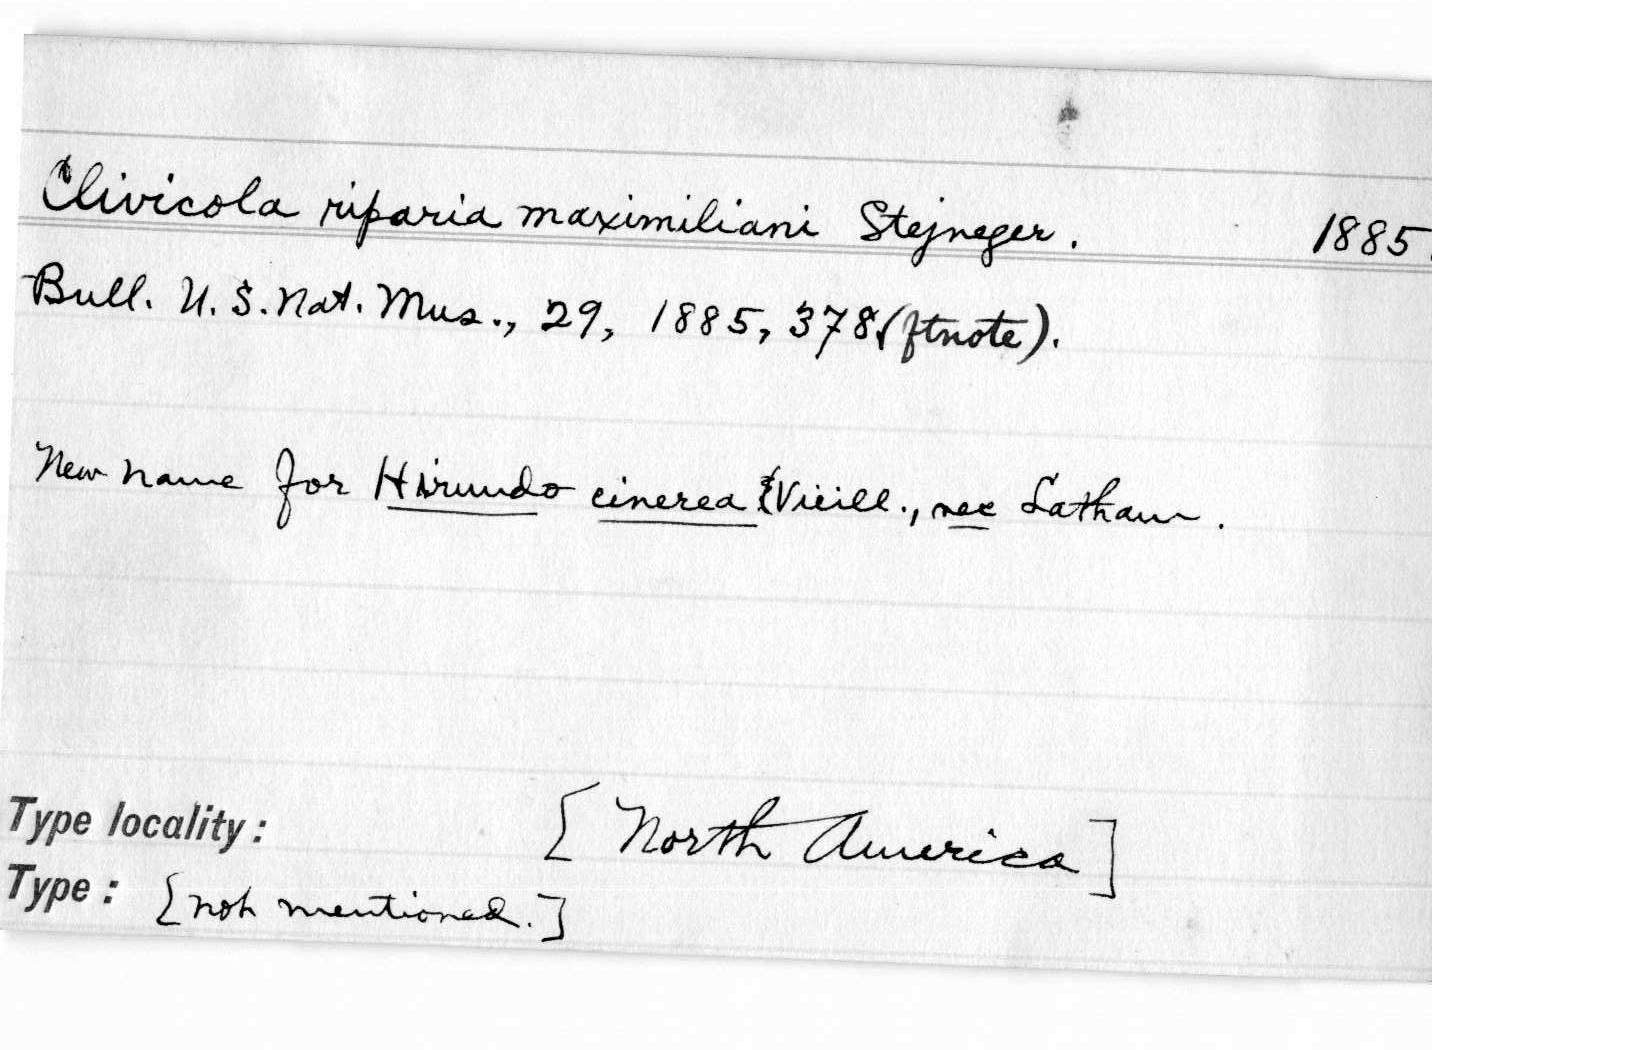 Clivicola riparia maximiliani Stejneger. 1885.
Bull. U. S. Nat. Mus., 29, 1885, 378 (ftnote).
New name for Hirundo cinerea Vieill., nec Latham.
Type locality: [North America]
Type: [not mentioned.]